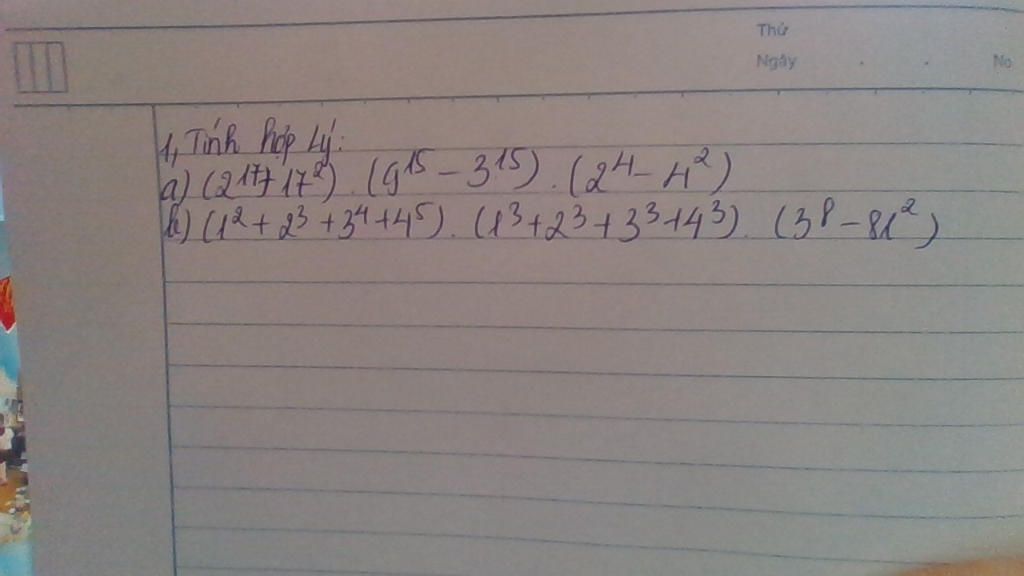 Thứ
Ngày . . No
1, Tính hợp lý:
a) (2¹⁷+17²) . (9¹⁵ - 3¹⁵) . (2⁴ - 4²)
b) (1² + 2³ + 3⁴ + 4⁵) . (1³ + 2³ + 3³ + 4³) . (3⁸ - 81²)